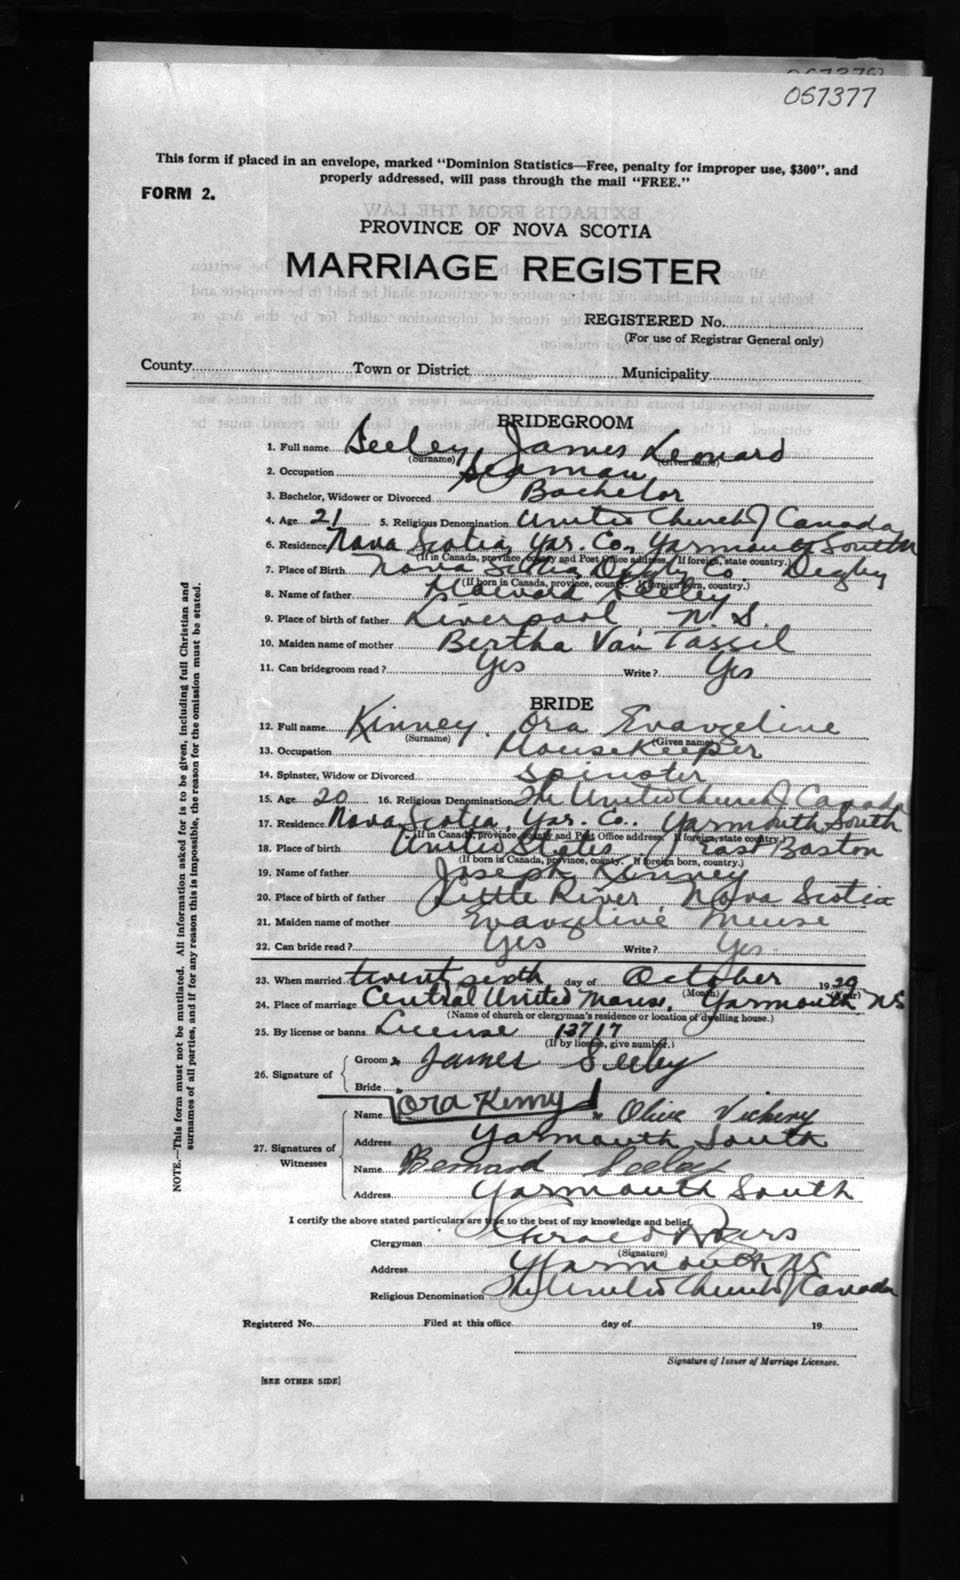 057377
This form if placed in an envelope, marked "Dominion Statistics—Free, penalty for improper use, $300", and
properly addressed, will pass through the mail "FREE."
FORM 2.
PROVINCE OF NOVA SCOTIA
MARRIAGE REGISTER
REGISTERED No.
(For use of Registrar General only)
County Town or District Municipality
BRIDEGROOM
1. Full name Seeley, James Leonard
(Surname) (Given name)
2. Occupation Seaman
3. Bachelor, Widower or Divorced Bachelor
4. Age 21 5. Religious Denomination United Church of Canada
6. Residence Nova Scotia, Yar. Co. Yarmouth South
(If in Canada, province, county and Post Office address. If foreign, state country.)
7. Place of Birth Nova Scotia, Digby Co. Digby
(If born in Canada, province, county. If foreign born, country.)
8. Name of father Seeley
9. Place of birth of father Liverpool, N.S.
10. Maiden name of mother Bertha Van Tassel
11. Can bridegroom read? Yes Write? Yes
BRIDE
12. Full name Kinney, Ora Evangeline
(Surname) (Given name)
13. Occupation Housekeeper
14. Spinster, Widow or Divorced Spinster
15. Age 20 16. Religious Denomination The United Church of Canada
17. Residence Nova Scotia, Yar. Co. Yarmouth South
(If in Canada, province, county and Post Office address. If foreign, state country.)
18. Place of birth United States East Boston
(If born in Canada, province, county. If foreign born, country.)
19. Name of father Joseph Kinney
20. Place of birth of father Little River, Nova Scotia
21. Maiden name of mother Evangeline Meuse
22. Can bride read? Yes Write? Yes
23. When married twenty sixth day of October 1929
(Month) (Year)
24. Place of marriage Central United Manse, Yarmouth NS
(Name of church or clergyman's residence or location of dwelling house.)
25. By license or banns License 13717
(If by license, give number.)
26. Signature of Groom James Seeley
Bride Ora Kinny
27. Signatures of Witnesses
Name Olive Vickery
Address Yarmouth South
Name Bernard Seeley
Address Yarmouth South
I certify the above stated particulars are true to the best of my knowledge and belief.
Clergyman Gerald
(Signature)
Address Yarmouth NS
Religious Denomination The United Church of Canada
Registered No. Filed at this office day of 19
Signature of Issuer of Marriage Licenses.
[SEE OTHER SIDE]
NOTE.—This form must not be mutilated. All information asked for is to be given, including full Christian and
surnames of all parties, and if for any reason this is impossible, the reason for the omission must be stated.